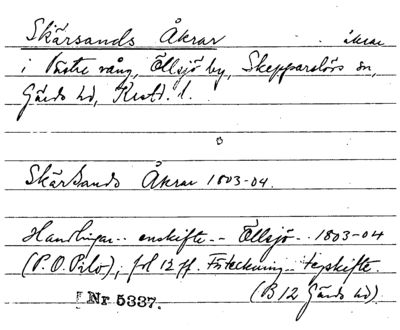 Skärsands Åkrar åkrar
i Västre vång, Öllsjö by, Skepparslövs sn,
Gärds hd, Krstd. l.
Skärsands Åkrar 1803-04.
Handlingar .. enskifte .. Öllsjö .. 1803-04
(P.O. Pilo), fol 12 ff. Förteckning .. tegskifte.
(B 12 Gärds hd)
Nr 5337.